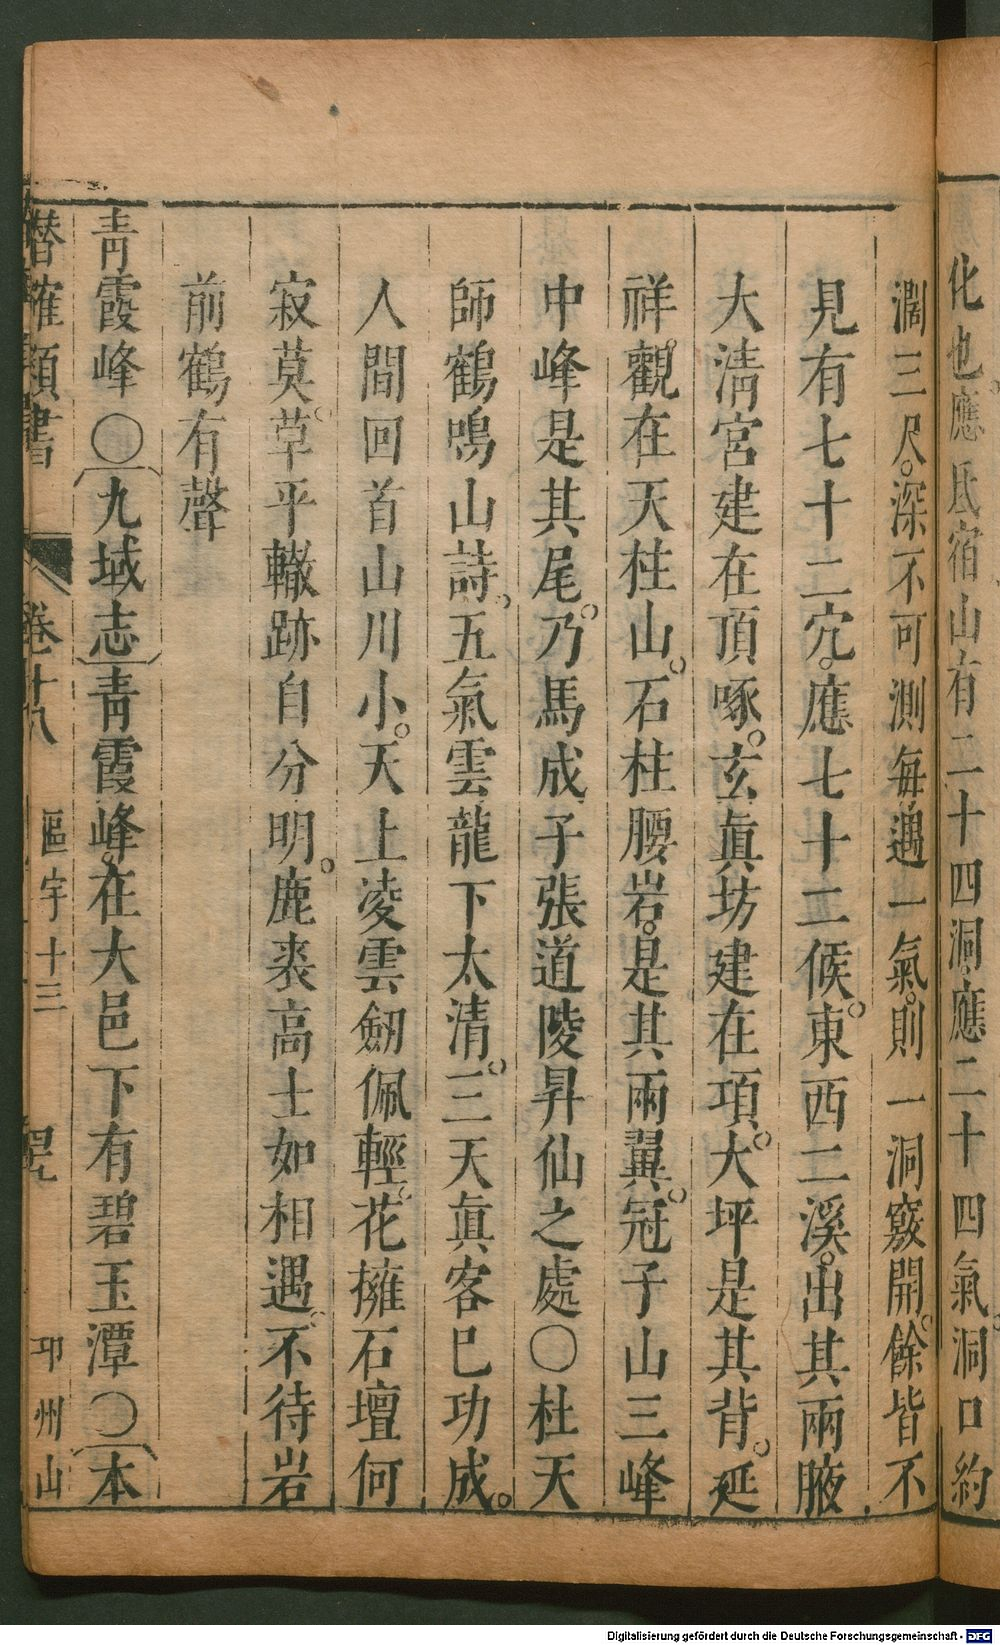 化也應氐宿山有二十四洞應二十四氣洞口約
濶三尺深不可測每遇一氣則一洞竅開餘皆不
見有七十二穴應七十二候東西二溪出其兩腋
大清宮建在頂啄玄眞坊建在項大坪是其背延
祥觀在天柱山石柱腰岩是其兩翼冠子山三峰
中峰是其尾乃馬成子張道陵昇仙之處〇杜天
師鶴鳴山詩五氣雲龍下太清三天眞客巳功成
人間回首山川小天上凌雲劒佩輕花擁石壇何
寂莫草平轍跡自分明鹿裘高士如相遇不待岩
前鶴有聲
靑霞峰〇〔九域志〕靑霞峰在大邑下有碧玉潭〇〔本
潛確類書 卷十八 區宇十三 邛州山
Digitalisierung gefördert durch die Deutsche Forschungsgemeinschaft - DFG